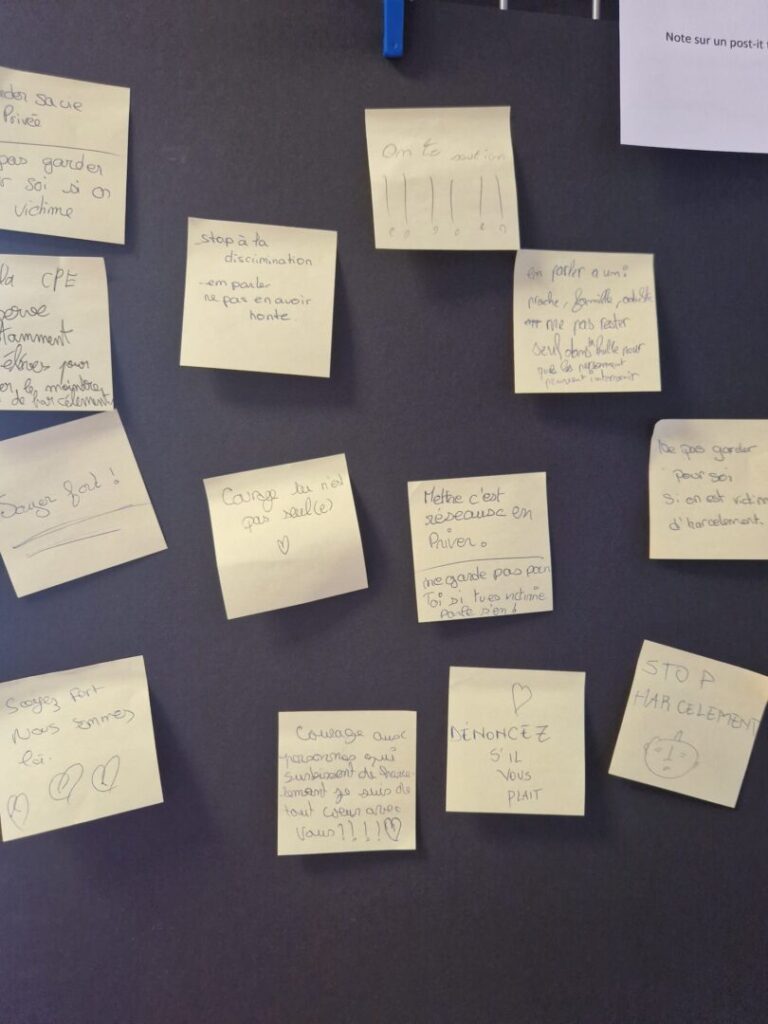 Note sur un post-it
der sa vie
Privée
pas garder
r soi si on
victime
On te soutien
! ! ! ! ! !
stop à la
discrimination
-em parler
ne pas en avoir
honte.
en parler a un:
proche, famille, adulte
me pas rester
seul dans bulle pour
que les personnent
peuvent intervenir
la CPE
erve
tamment
élèves pour
er les moindres
de harcèlement
Soyer fort !
Courage tu n'es
pas seul(e)
♡
Mettre c'est
réseaux en
Priver.
me garde pas pour
Toi si tu es victime
parle s'en !
Ne pas garder
pour soi
si on est victim
d'harcelement.
Soyez fort
Nous sommes
là.
Courage aux
personnes qui
subissent de harce-
lement je suis de
tout cœur avec
vous !!!!♡
♡
DÉNONCEZ
S'IL
VOUS
PLAIT
STOP
HARCELEMENT